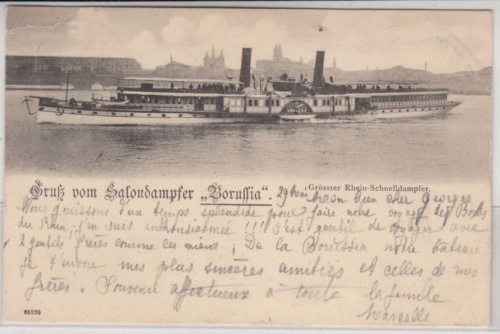 Gruß vom Salondampfer „Borussia“.
Grösster Rhein-Schnelldampfer.
mon bien cher Georges
Nous jouissons d'un temps splendide pour faire notre voyage des Bords
du Rhin, j'en suis enthousiasmée !!! C'est gentil de voyager avec
2 gentils frères comme les miens ; De la Borussia notre bateau
je t'envoie mes plus sincères amitiés et celles de mes
frères. Souvenir affectueux à toute la famille
Marcelle